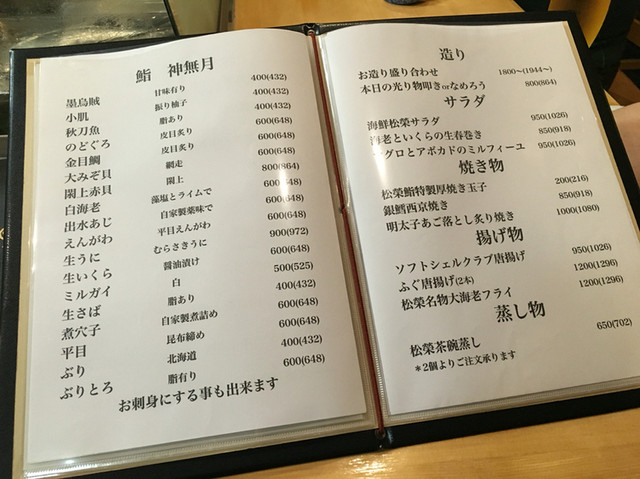 鮨　神無月
墨烏賊 甘味有り 400(432)
小肌 振り柚子 400(432)
秋刀魚 脂あり 600(648)
のどぐろ 皮目炙り 600(648)
金目鯛 皮目炙り 600(648)
大みぞ貝 網走 800(864)
閖上赤貝 閖上 600(648)
白海老 藻塩とライムで 600(648)
出水あじ 自家製薬味で 600(648)
えんがわ 平目えんがわ 900(972)
生うに むらさきうに 600(648)
生いくら 醤油漬け 500(525)
ミルガイ 白 400(432)
生さば 脂あり 600(648)
煮穴子 自家製煮詰め 600(648)
平目 昆布締め 400(432)
ぶり 北海道 400(432)
ぶりとろ 脂有り 600(648)
お刺身にする事も出来ます
造り
お造り盛り合わせ 1800〜(1944〜)
本日の光り物叩きorなめろう 800(864)
サラダ
海鮮松榮サラダ 950(1026)
海老といくらの生春巻き 850(918)
グロとアボカドのミルフィーユ 950(1026)
焼き物
松榮鮨特製厚焼き玉子 200(216)
銀鱈西京焼き 850(918)
明太子あご落とし炙り焼き 1000(1080)
揚げ物
ソフトシェルクラブ唐揚げ 950(1026)
ふぐ唐揚げ(2本) 1200(1296)
松榮名物大海老フライ 1200(1296)
蒸し物
松榮茶碗蒸し 650(702)
＊2個よりご注文承ります